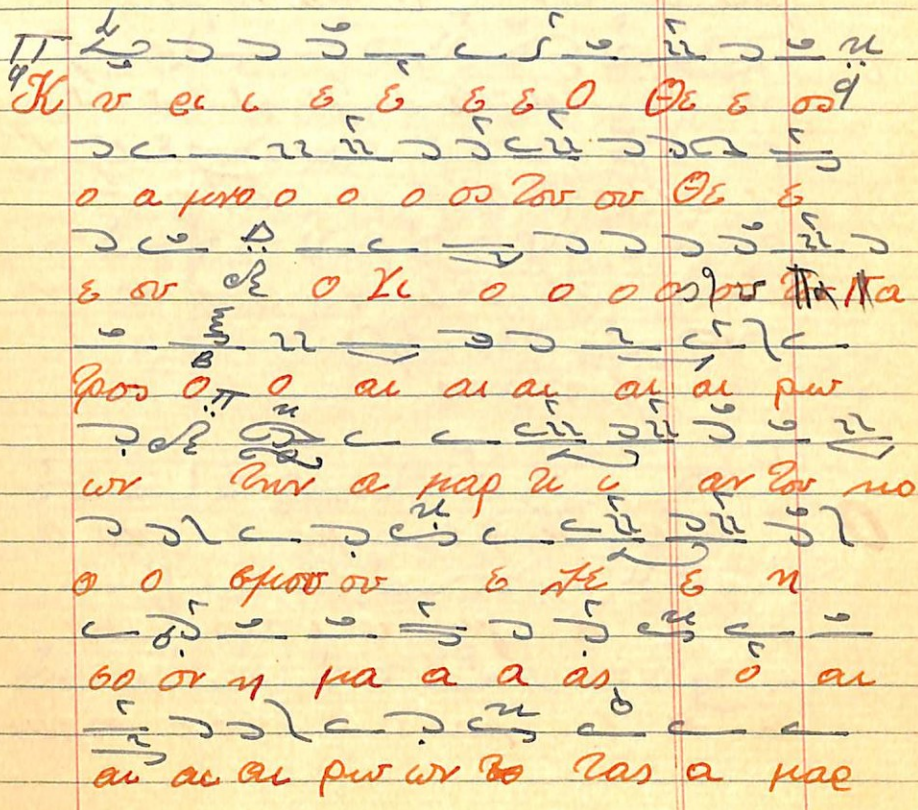 Κ υ ρι ι ε ε ε ε Ο Θε ε ος
ο α μνο ο ο ο ος του ου Θε ε
ε ου ο Υι ο ο ο ος του Πα
τρος ο ο αι αι αι αι αι ρω
ων την α μαρ τι ι αν του κο
ο ο σμου ου ε λε ε η
σο ον η μα α α ας ο αι
αι αι αι ρω ων τας α μαρ